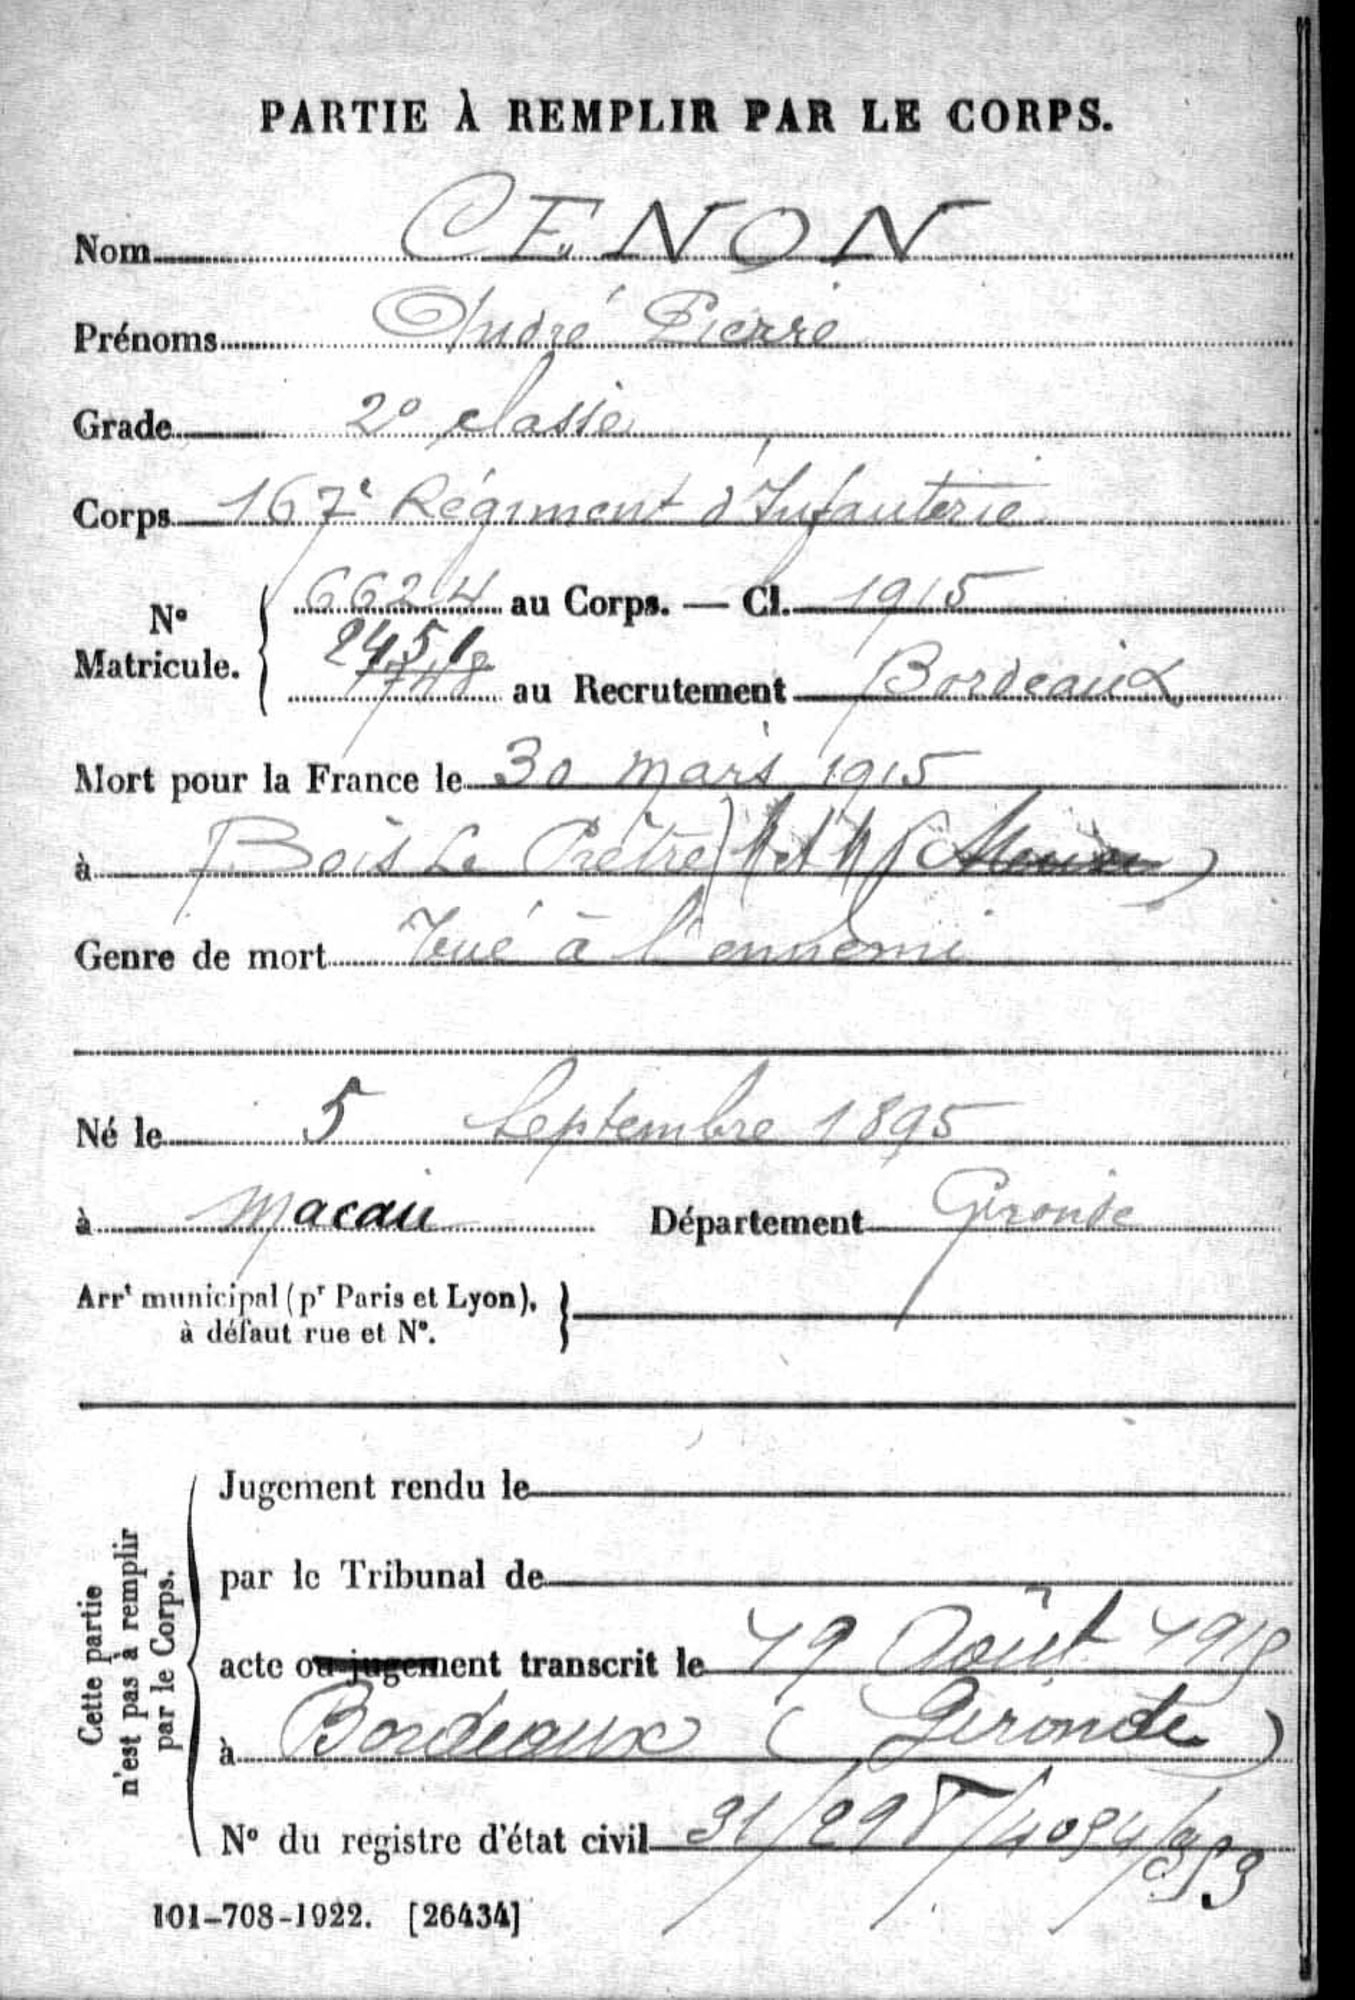 PARTIE À REMPLIR PAR LE CORPS.
Nom CENON
Prénoms André Pierre
Grade 2e classe
Corps 167e Régiment d'Infanterie
No Matricule. 6624 au Corps. — Cl. 1915
2451
1748 au Recrutement Bordeaux
Mort pour la France le 30 mars 1915
à Bois Le Prêtre) M et M (Meuse)
Genre de mort Tué à l'ennemi
Né le 5 Septembre 1895
à Macau Département Gironde
Arrt municipal (pr Paris et Lyon),
à défaut rue et No.
Cette partie
n'est pas à remplir
par le Corps.
Jugement rendu le
par le Tribunal de
acte ou jugement transcrit le 19 Août 1915
à Bordeaux (Gironde)
No du registre d'état civil
101-708-1922. [26434]